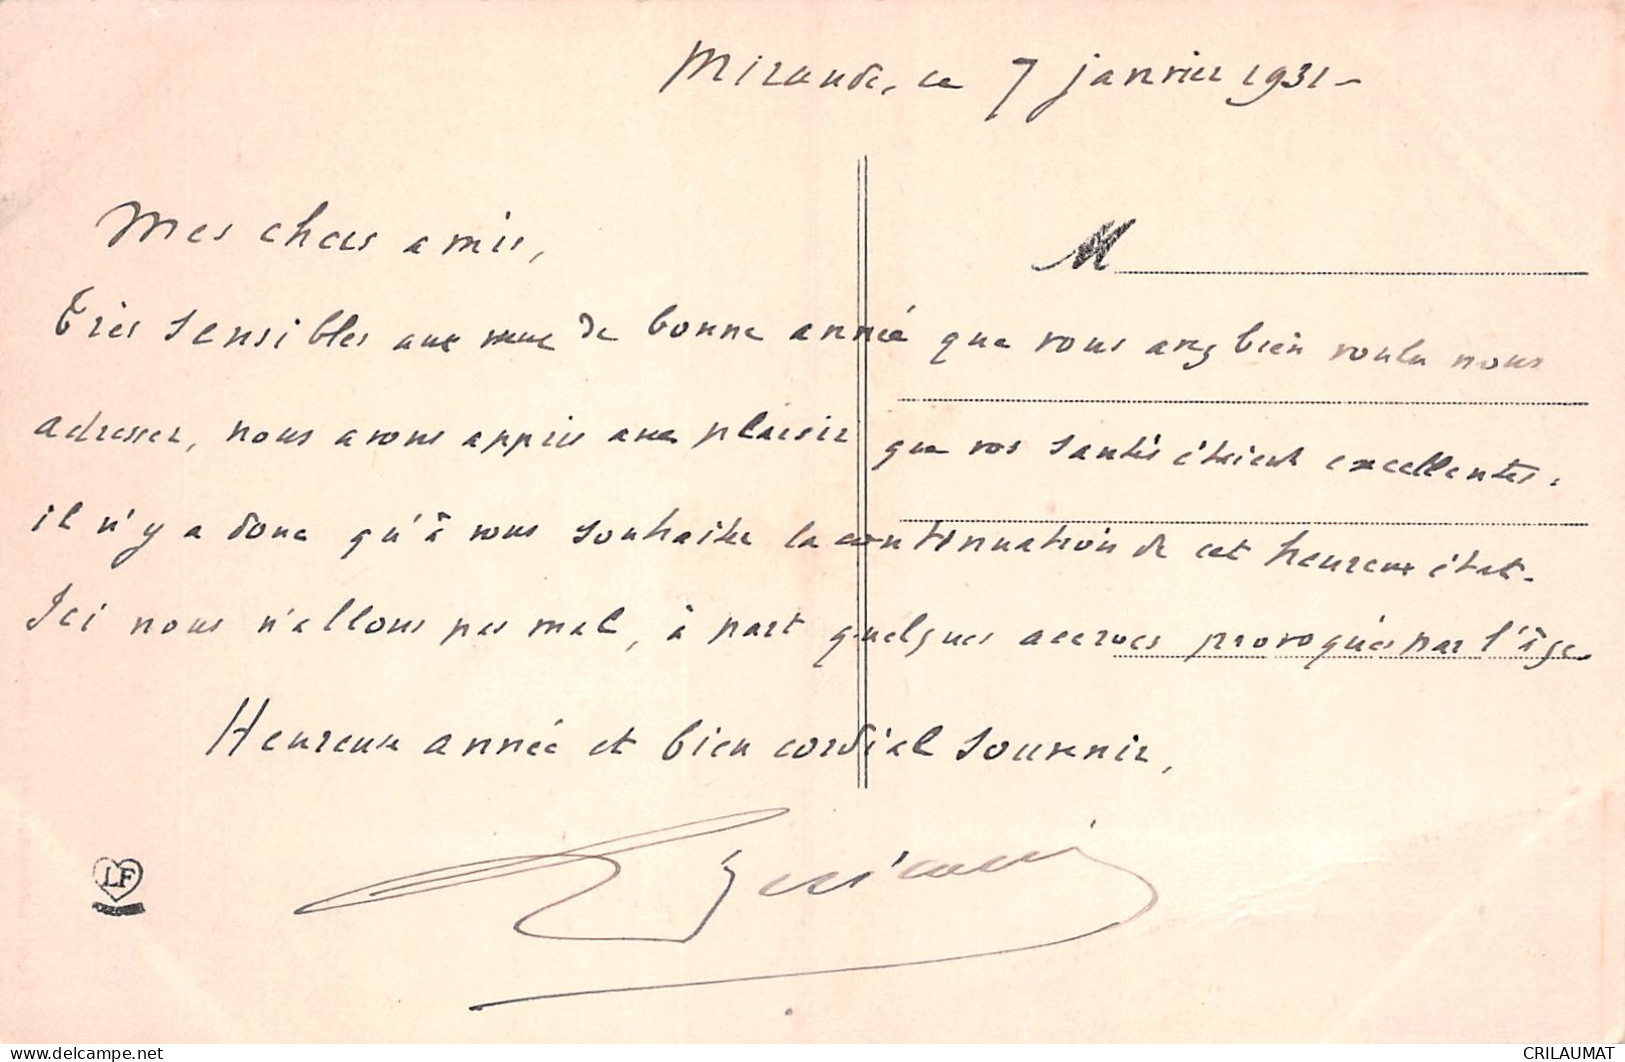 Mirande, ce 7 janvier 1931-
Mes chers amis,
M
Très sensibles aux vœux de bonne année que vous avez bien voulu nous
adresser, nous avons appris avec plaisir que vos santés étaient excellentes.
il n'y a donc qu'à vous souhaiter la continuation de cet heureux état.
Ici nous n'allons pas mal, à part quelques accrocs provoqués par l'âge
Heureuse année et bien cordial souvenir,
LF
www.delcampe.net
CRILAUMAT